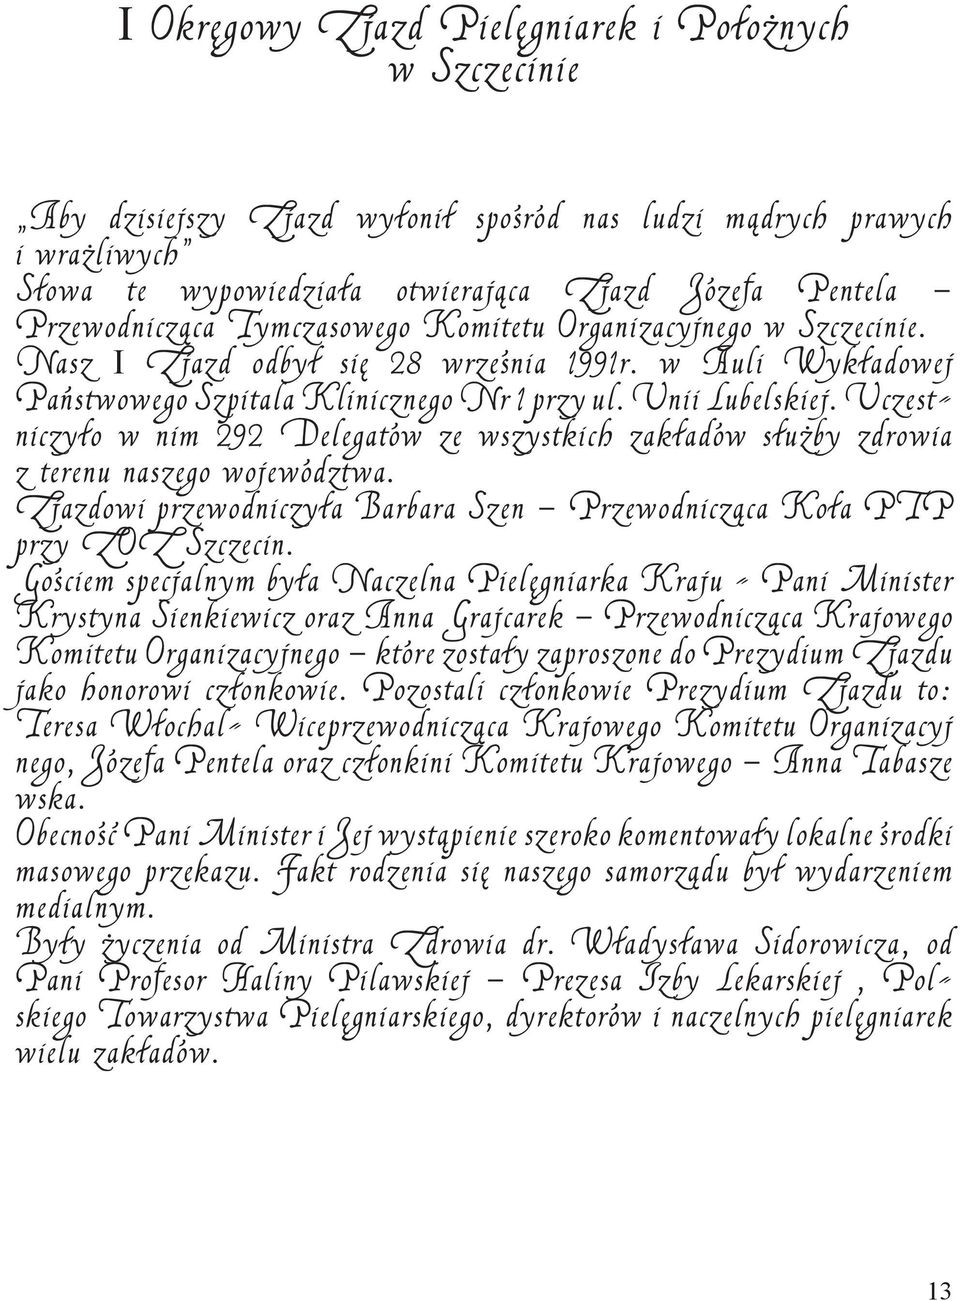 I Okręgowy Zjazd Pielęgniarek i Położnych
w Szczecinie
„Aby dzisiejszy Zjazd wyłonił spośród nas ludzi mądrych prawych
i wrażliwych”
Słowa te wypowiedziała otwierająca Zjazd Józefa Pentela –
Przewodnicząca Tymczasowego Komitetu Organizacyjnego w Szczecinie.
Nasz I Zjazd odbył się 28 września 1991r. w Auli Wykładowej
Państwowego Szpitala Klinicznego Nr 1 przy ul. Unii Lubelskiej. Uczest-
niczyło w nim 292 Delegatów ze wszystkich zakładów służby zdrowia
z terenu naszego województwa.
Zjazdowi przewodniczyła Barbara Szen – Przewodnicząca Koła PTP
przy ZOZ Szczecin.
Gościem specjalnym była Naczelna Pielęgniarka Kraju - Pani Minister
Krystyna Sienkiewicz oraz Anna Grajcarek – Przewodnicząca Krajowego
Komitetu Organizacyjnego – które zostały zaproszone do Prezydium Zjazdu
jako honorowi członkowie. Pozostali członkowie Prezydium Zjazdu to:
Teresa Włochal- Wiceprzewodnicząca Krajowego Komitetu Organizacyj
nego, Józefa Pentela oraz członkini Komitetu Krajowego – Anna Tabasze
wska.
Obecność Pani Minister i Jej wystąpienie szeroko komentowały lokalne środki
masowego przekazu. Fakt rodzenia się naszego samorządu był wydarzeniem
medialnym.
Były życzenia od Ministra Zdrowia dr. Władysława Sidorowicza, od
Pani Profesor Haliny Pilawskiej – Prezesa Izby Lekarskiej , Pol-
skiego Towarzystwa Pielęgniarskiego, dyrektorów i naczelnych pielęgniarek
wielu zakładów.
13